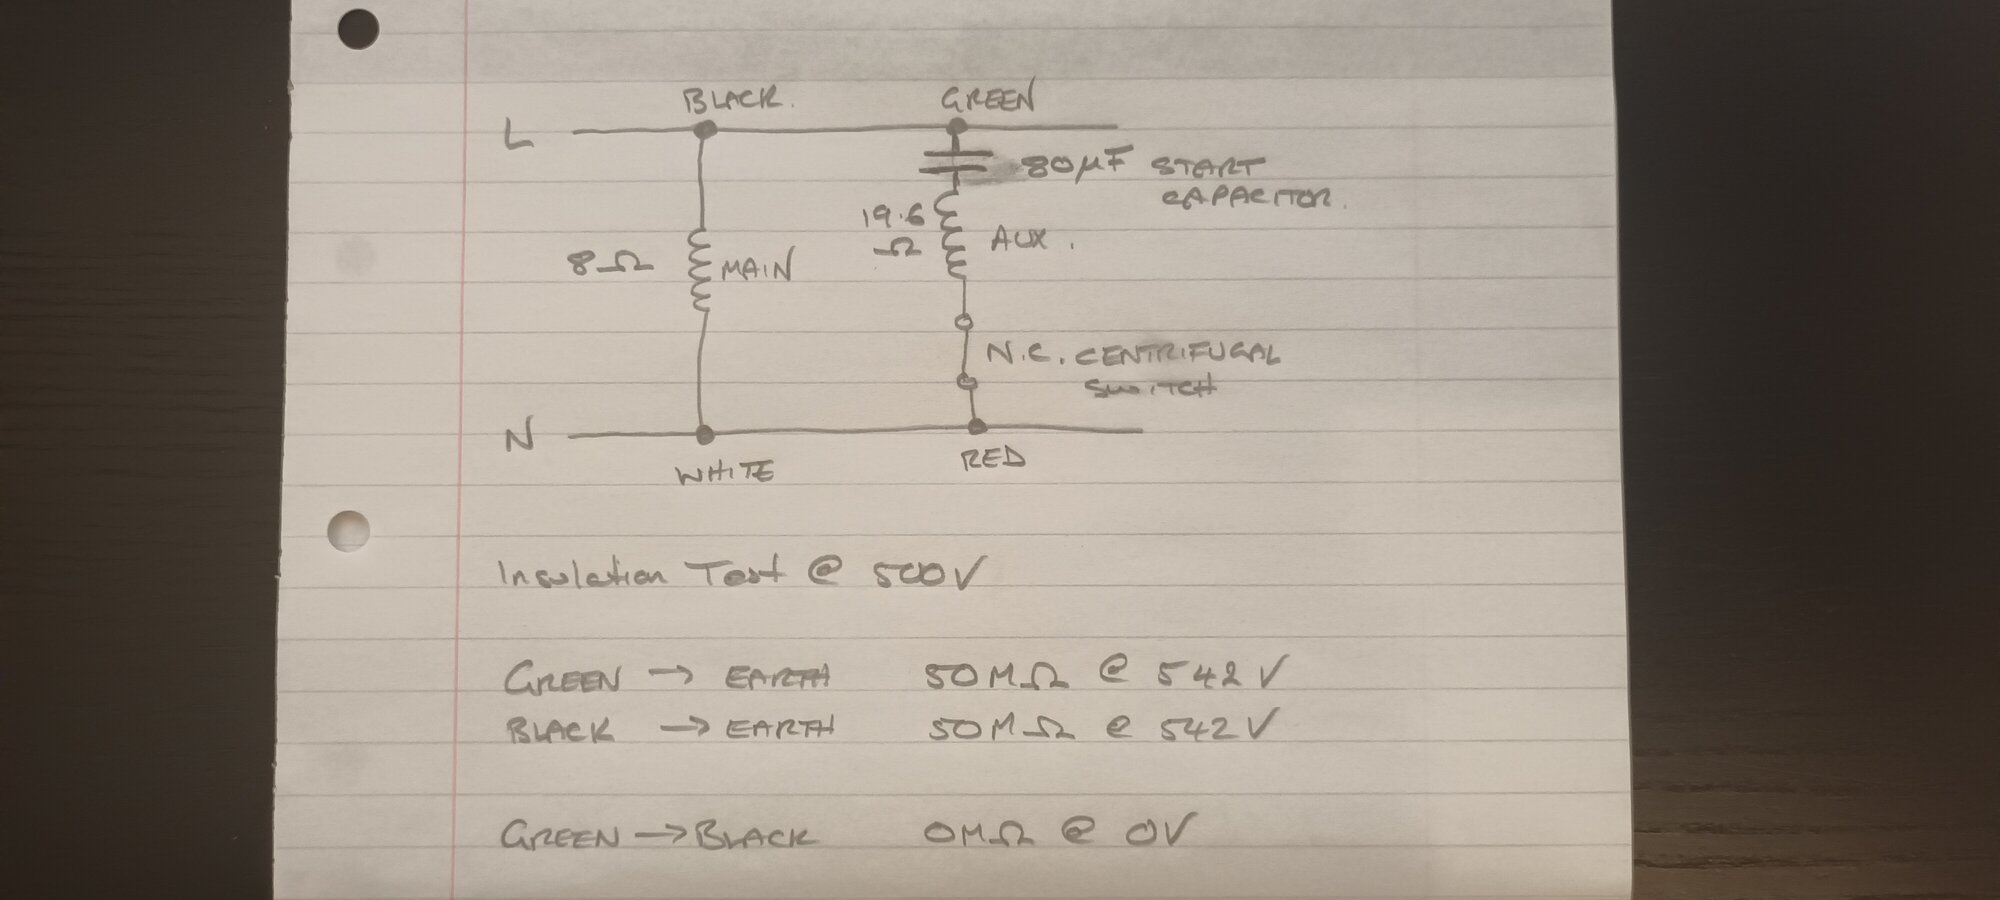 BLACK. GREEN
L
80µF START
CAPACITOR.
19.6
Ω AUX.
8Ω MAIN
N.C. CENTRIFUGAL
SWITCH
N
WHITE RED
Insulation Test @ 500V
GREEN → EARTH 50MΩ @ 542V
BLACK → EARTH 50MΩ @ 542V
GREEN → BLACK 0MΩ @ 0V